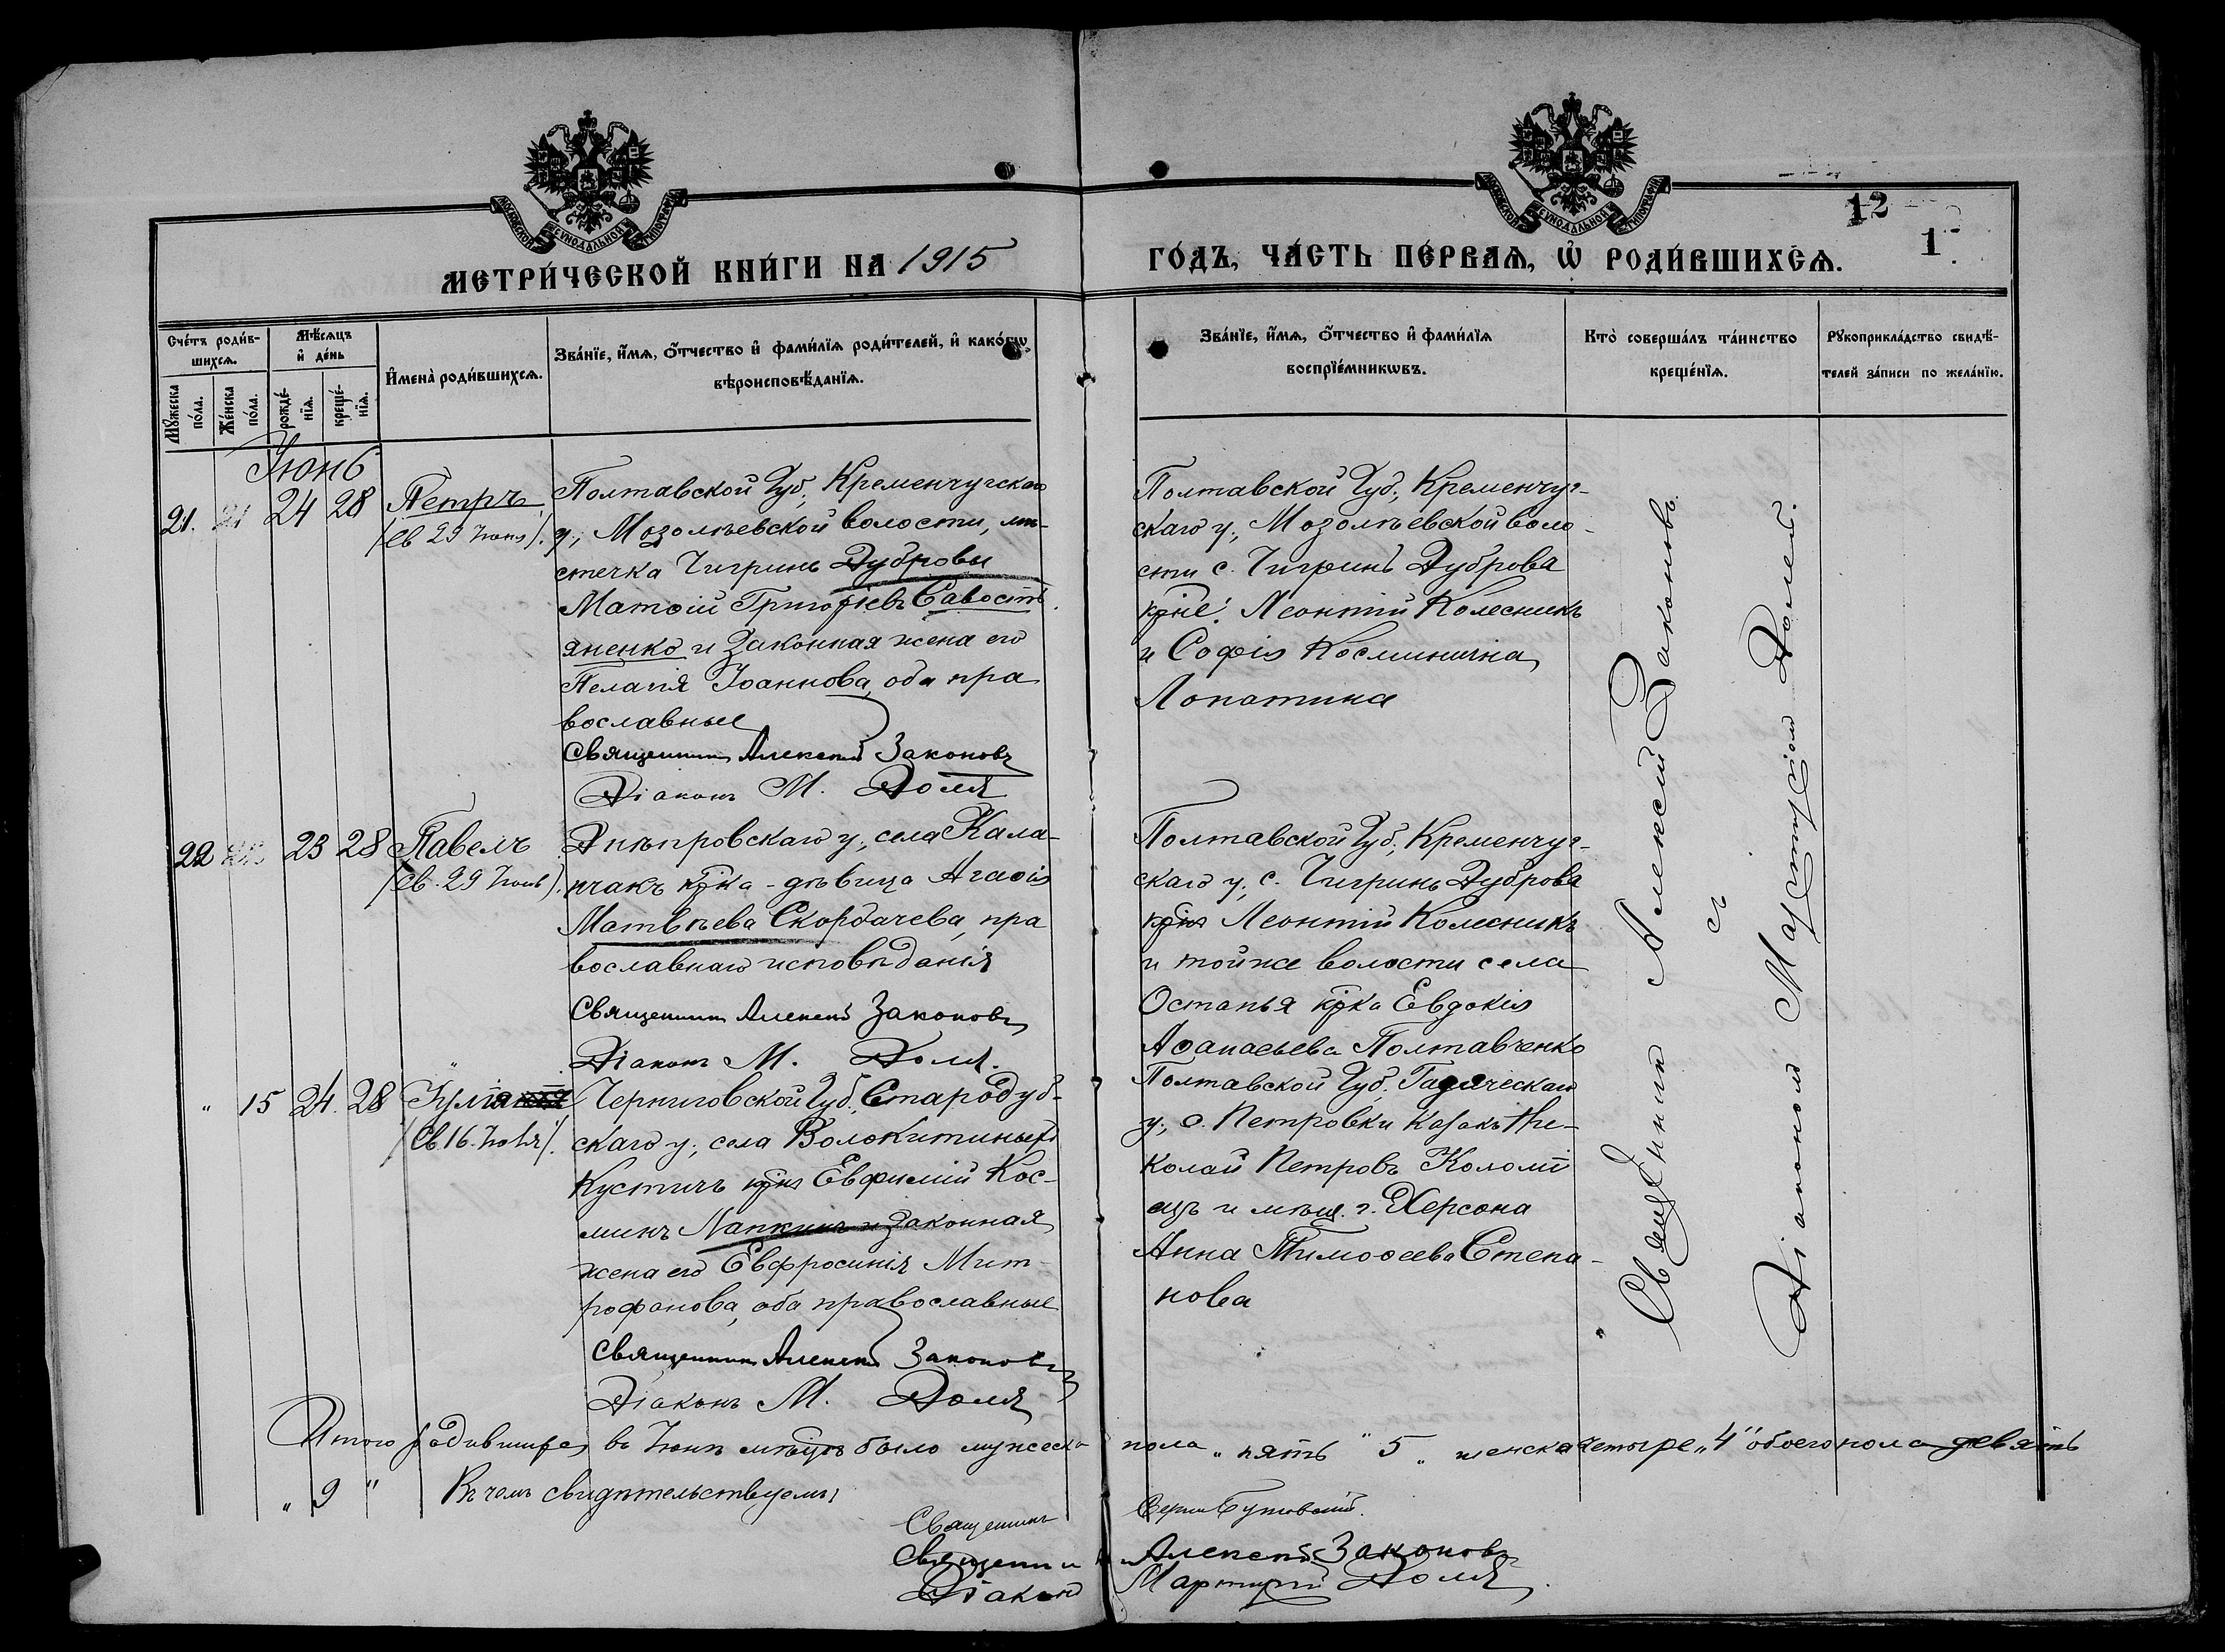 МОСКОВСКОЙ СѴНОДАЛЬНОЙ ТИПОГРАФІИ
МОСКОВСКОЙ СѴНОДАЛЬНОЙ ТИПОГРАФІИ
12
1
МЕТРИ́ЧЕСКОЙ КНИ́ГИ НА 1915 ГО́ДЪ, ЧА́СТЬ ПЕ́РВАѦ, Ѡ҆ РОДИ́ВШИХСѦ.
Сче́тъ роди́в-
шихсѧ.
Мꙋ́жеска по́ла.
Же́нска по́ла.
Мѣ́сѧцъ
и҆ де́нь
рожде́-
нїѧ.
креще́-
нїѧ.
И҆мена̀ роди́вшихсѧ.
Зва́нїе, и҆́мѧ, ѻ҆́тчество и҆ фами́лїѧ роди́телей, и҆ како́гѡ
вѣроисповѣ́данїѧ.
Зва́нїе, и҆́мѧ, ѻ҆́тчество и҆ фами́лїѧ
воспрїе́мникѡвъ.
Кто̀ соверша́лъ та́инство
креще́нїѧ.
Рꙋкоприкла́дство свидѣ́-
телей за́писи по жела́нїю.
Іюнь
21. 21 24 28 Петръ
/св 29 Іюня/.
Полтавской Губ., Кременчугскаго
у., Мозолѣевской волости, мѣ-
стечка Чигринъ Дубровы
Матѳій Григоріевъ Савость-
яненко и законная жена его
Пелагія Іоаннова, оба пра
вославные
Священникъ Алексій Законовъ
Діаконъ М. Доля
Полтавской Губ., Кременчуг-
скаго у., Мозолѣевской воло-
сти с. Чигринъ Дуброва
крне: Леонтій Колесникъ
и Софія Косминична
Лопатина
22 23 28 Павелъ
/св. 29 Іюня/.
Днѣпровскаго у., села Кала-
нчакъ крка - дѣвица Агаѳія
Матвѣева Скордачева, пра
вославнаго исповѣданія
Священникъ Алексій Законовъ
Діаконъ М. Доля.
Полтавской Губ., Кременчуг-
скаго у., с. Чигринъ Дуброва
крнъ Леонтій Колесникъ
и тойже волости села
Остапья крка Евдокія
Аѳанасьева Полтавченко
" 15 24 28
/св. 16. Іюля/.
Черниговской Губ., Стародуб-
скаго у., села
Кустичъ крнъ Евфимій Кос-
минъ Лапкинъ и законная
жена его Евфросинія Мит-
рофанова, оба православные
Священникъ Алексій Законовъ
Діаконъ М. Доля
Полтавской Губ., Гадяческаго
у., с. Петровки казакъ Ни-
колай Петровъ Коломі
ецъ и мѣщ. г. Херсона
Анна Тимоѳеева Степа-
нова
Священникъ Алексій Законовъ
съ
Діакономъ Мартиріемъ Долей.
Итого родившихся въ Іюнѣ мѣсяцѣ было мужеска пола „ пять " 5 „ женска четыре „ 4 " обоего пола девять
„ 9 " Въ чемъ свидѣтельствуемъ:
Священникъ
Священникъ Алексій Законовъ
Діаконъ Мартирій Доля